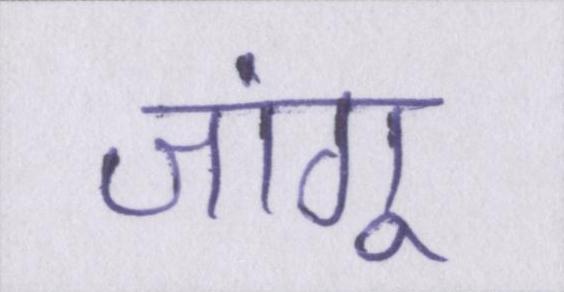 जांगू